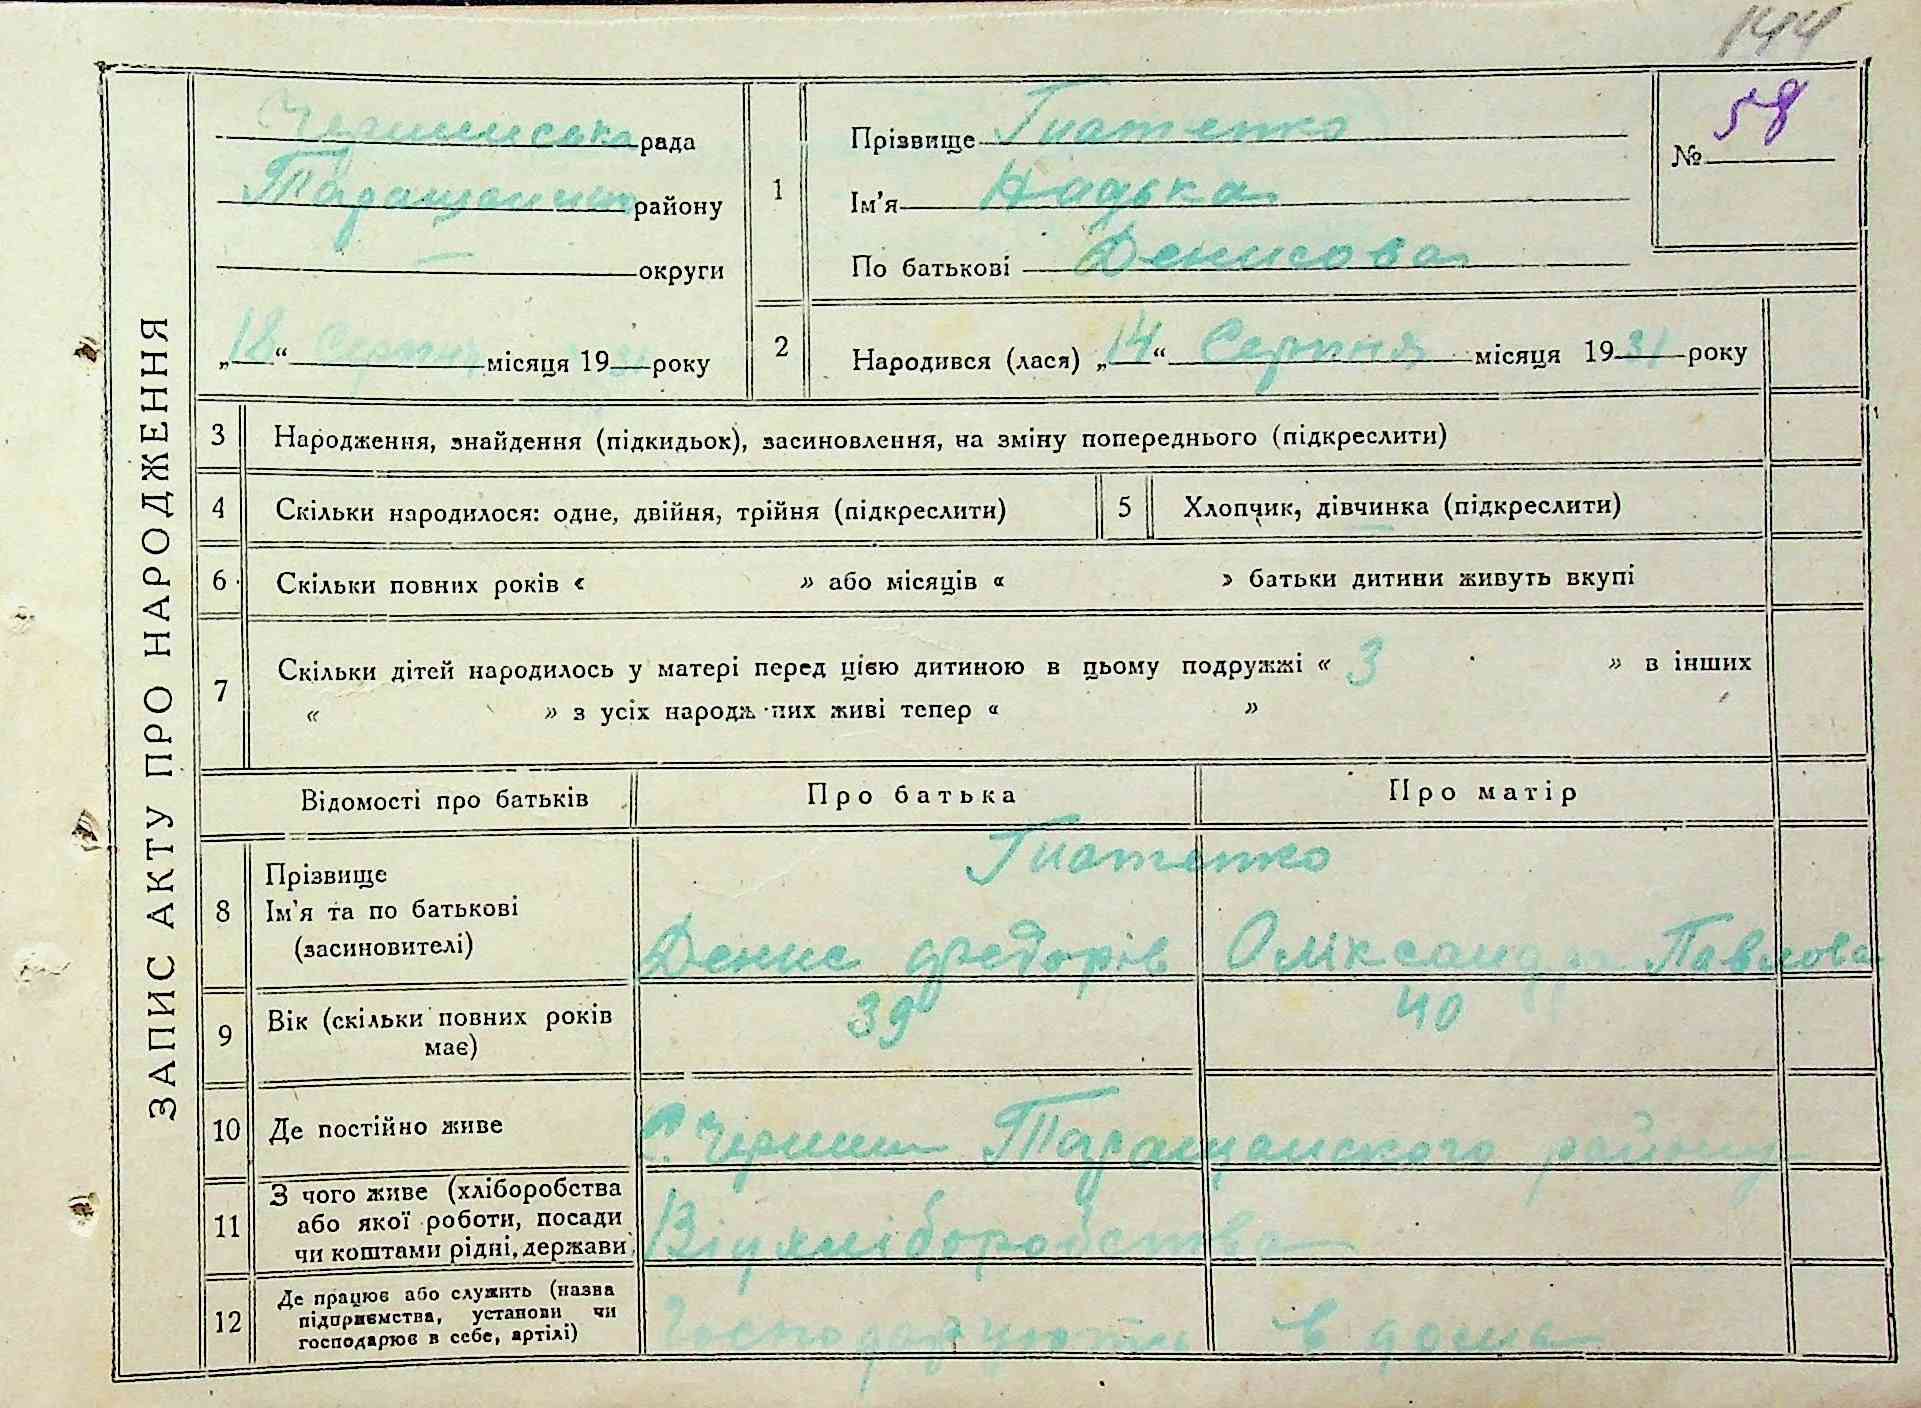 144
ЗАПИС АКТУ ПРО НАРОДЖЕННЯ
рада
Таращанського району
— округи
„18“ Серпня місяця 1931 року
1 Прізвище Гнатенко
Ім'я Надька
По батькові Денисова
№ 58
2 Народився (лася) „14“ Серпня місяця 1931 року
3 Народження, знайдення (підкидьок), засиновлення, на зміну попереднього (підкреслити)
4 Скільки народилося: одне, двійня, трійня (підкреслити)
5 Хлопчик, дівчинка (підкреслити)
6 Скільки повних років « » або місяців « » батьки дитини живуть вкупі
7 Скільки дітей народилось у матері перед цією дитиною в цьому подружжі « 3 » в інших
« » з усіх народж них живі тепер « »
Відомості про батьків Про батька Про матір
8 Прізвище
Ім'я та по батькові
(засиновителі)
Гнатенко
Денис Федорів Павлова
9 Вік (скільки повних років
має)
39 40
10 Де постійно живе
с. Таращанского району
11 З чого живе (хліборобства
або якої роботи, посади
чи коштами рідні, держави)
Від хліборобства
12 Де працює або служить (назва
підприємства, установи чи
господарює в себе, артілі)
Господарують в дома